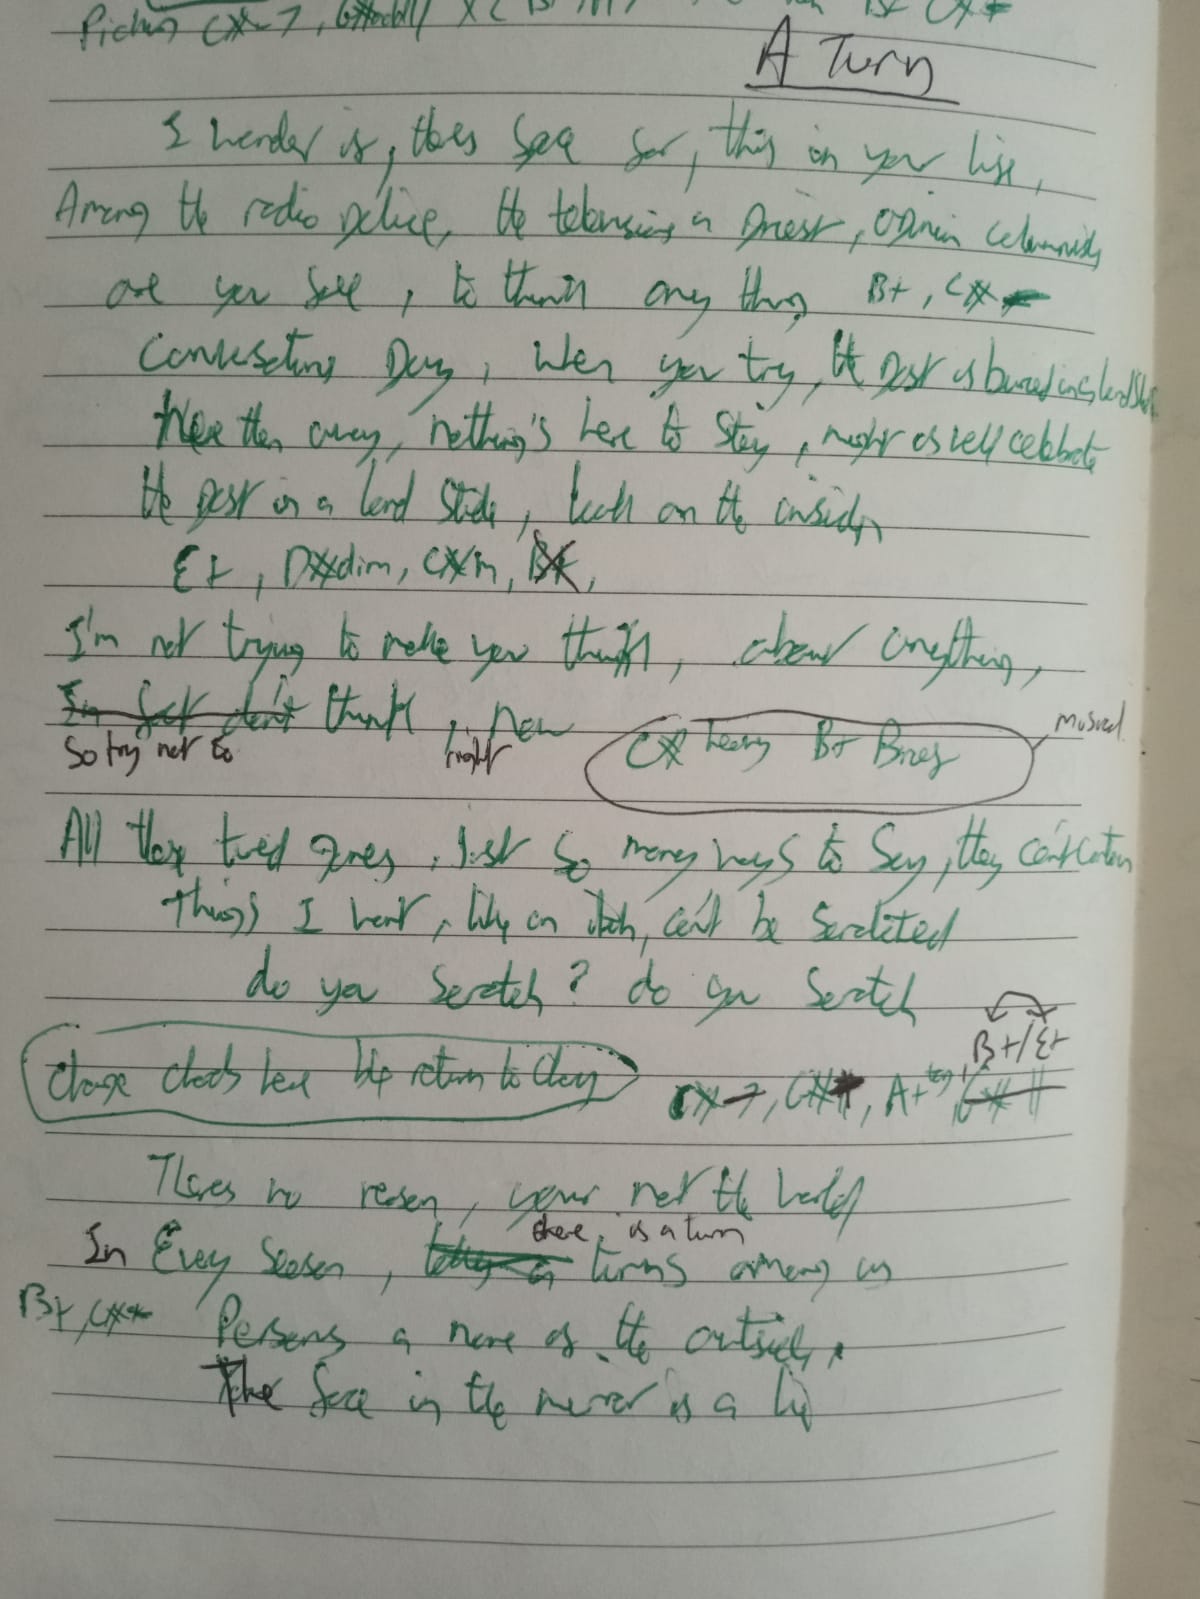 Picking C#-7, G#
A Turn
I wonder if, this far, this in your life,
Among the radio police, the television a priest, opinion columnists
are you to think any thing B+, C#
Day, when you try, the past is buried in a landslide
then away, nothing's here to stay, might as well celebrate
the past in a land slide, look on the inside
E+, D#dim, C#m,
I'm not trying to make you think, about anything,
In fact don't think, now
So try not to right
C# heavy B+ Bring musical
All these tired, just so many ways to say, they can't contain
things I want, like an itch, can't be scratched
do you scratch? do you scratch
Change chords here return to
B+/E+
C#-7, G#, A+
Theres no reason, your not the world
there is a turn
In Every season, turns among us
B+, C# Persons a name of the outside,
The face in the mirror is a lie